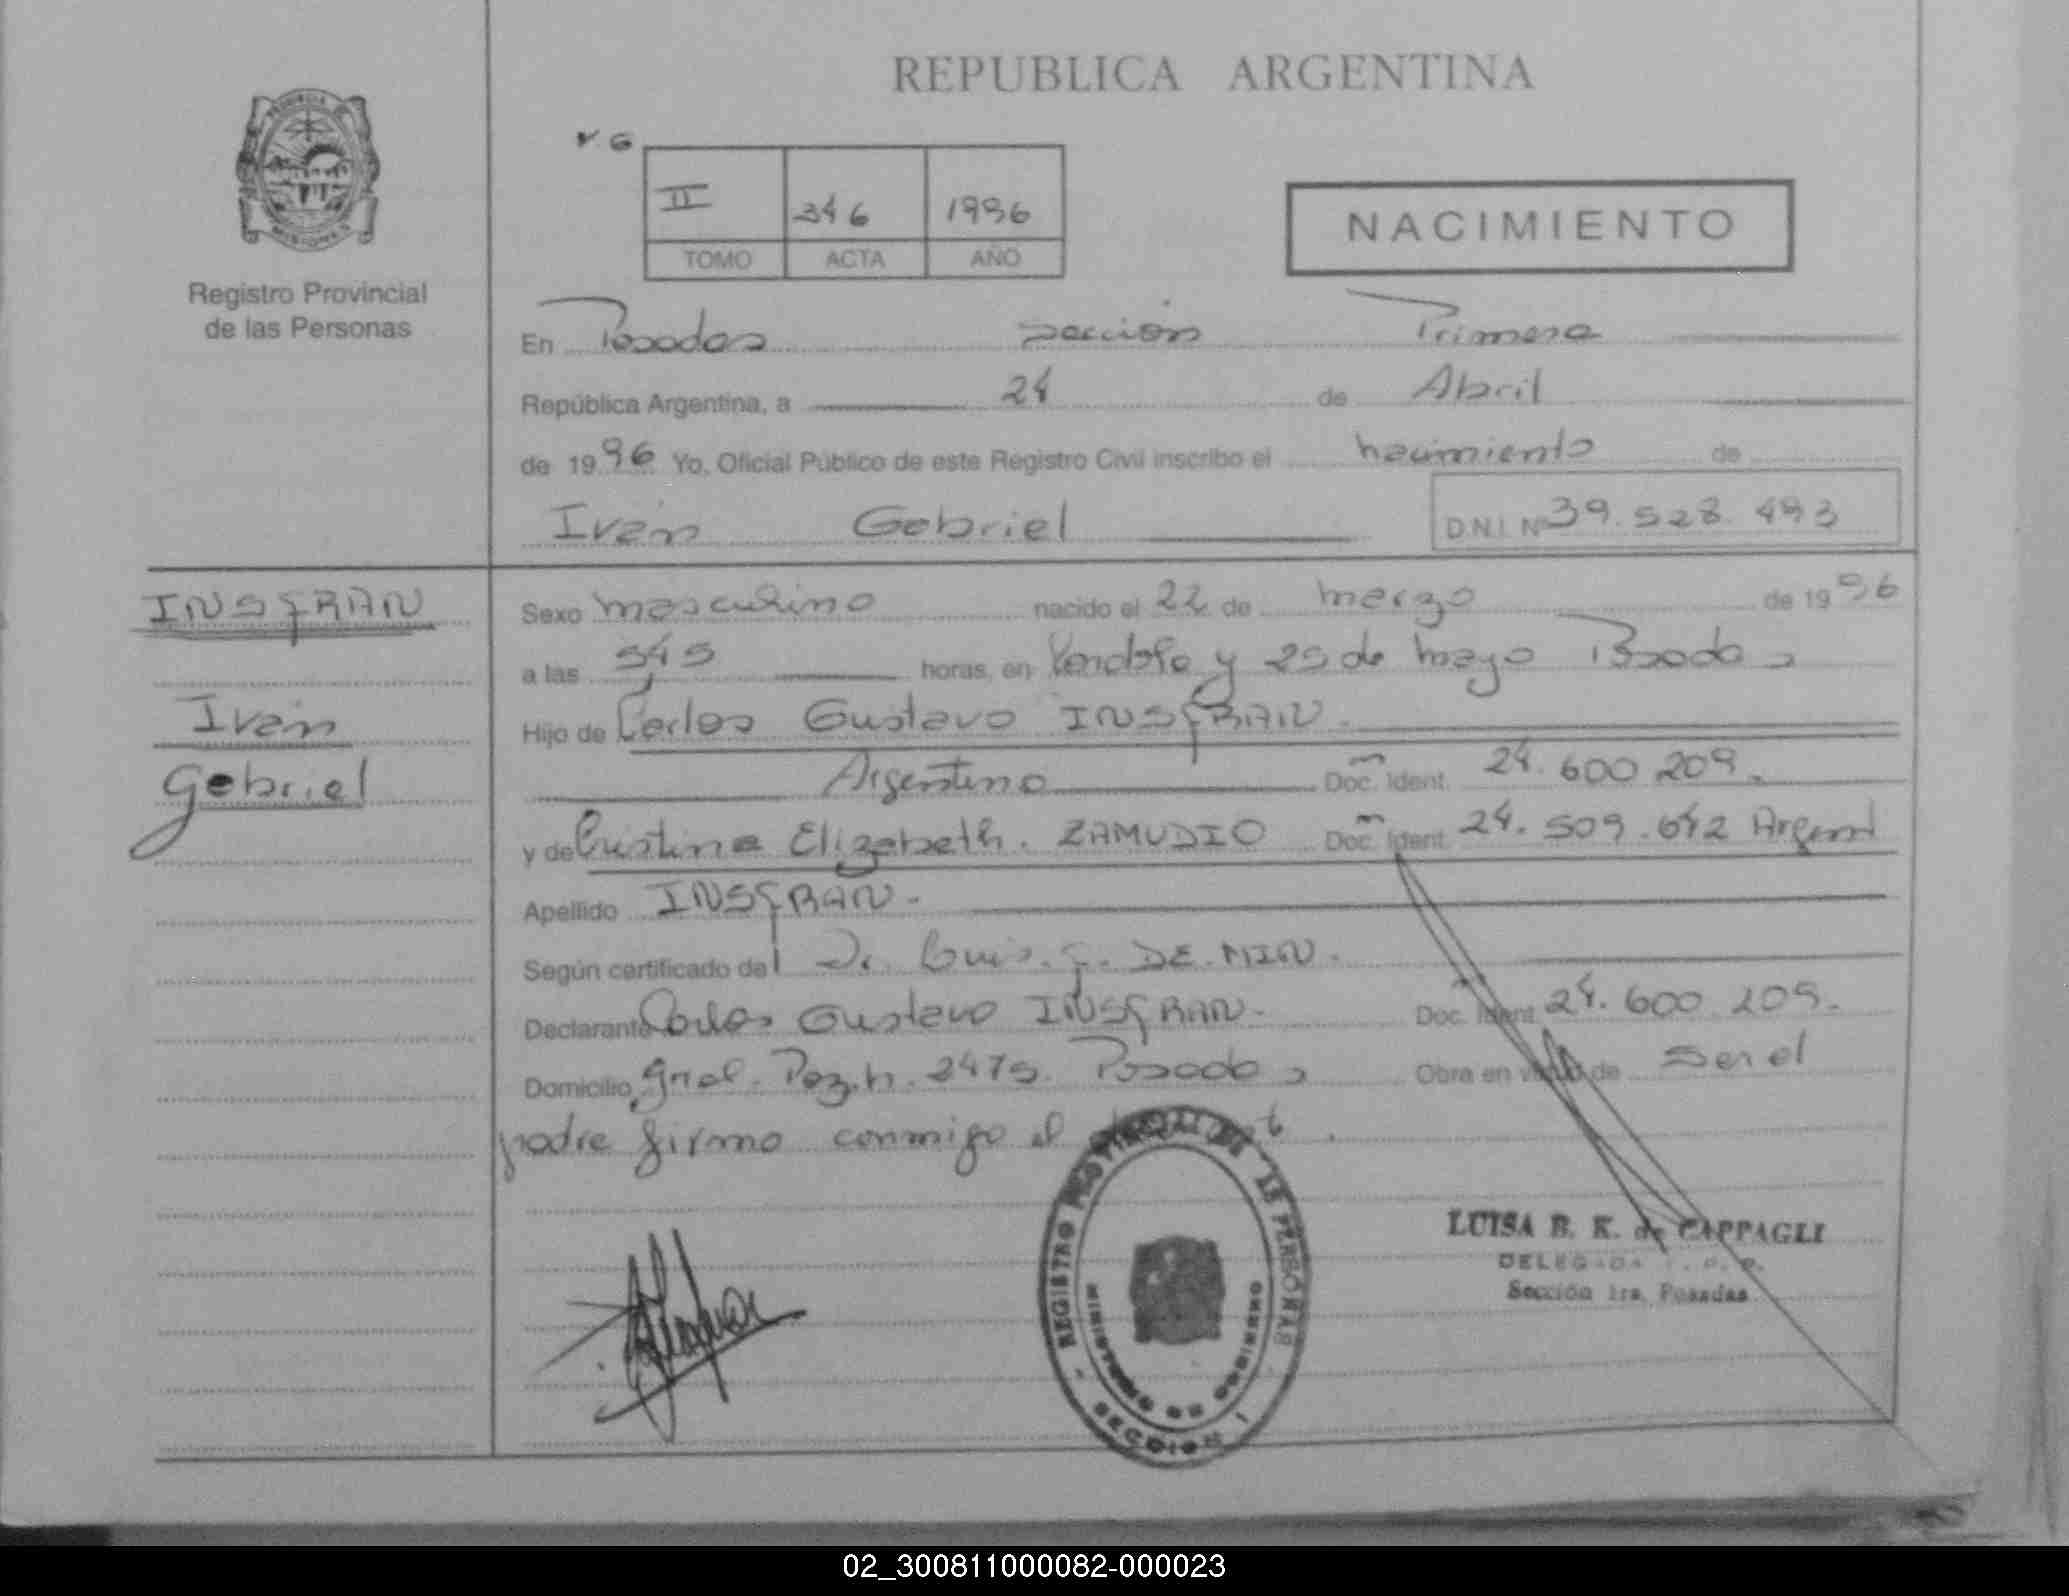 REPUBLICA ARGENTINA
PROVINCIA DE
MISIONES
Registro Provincial
de las Personas
II 346 1996
TOMO ACTA AÑO
NACIMIENTO
En Posadas sección Primera
República Argentina, a 24 de Abril
de 1996 Yo, Oficial Público de este Registro Civil inscribo el nacimiento de
Iván Gabriel D.N.I. Nº 39.528.493
INSFRAN
Iván
Gabriel
Sexo masculino nacido el 22 de marzo de 1996
a las 545 horas, en y 25 de mayo Posadas
Hijo de Carlos Gustavo INSFRAN.
Argentino Doc. Ident. 24.600.209.
y de Cristina Elizabeth. ZAMUDIO Doc. Ident. 24.509.642 Argent
Apellido INSFRAN.
Según certificado del Dr. Luis. F. DE.MIN.
Declarante Carlos Gustavo INSFRAN. Doc. Ident 24.600.209.
Domicilio Gral. Paz. n. 2475. Posadas Obra en virtud de ser el
padre firma conmigo el
REGISTRO PROVINCIAL DE LAS PERSONAS
MINISTERIO DE GOBIERNO
SECCION 1
LUISA B. K. de CAPPAGLI
DELEGADA
Sección 1ra. Posadas
02_300811000082-000023